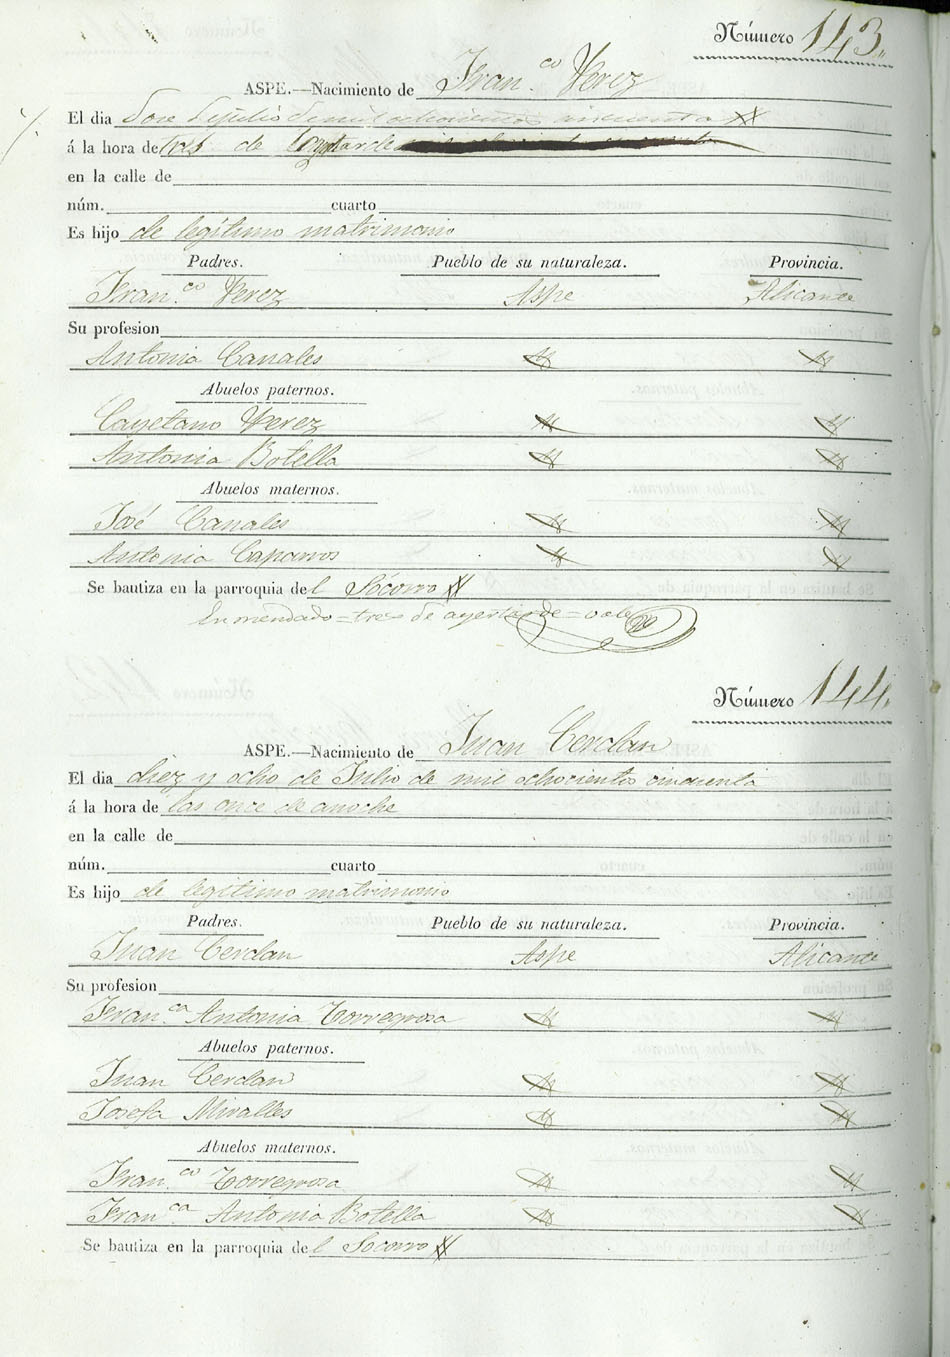 Número 143
ASPE.—Nacimiento de Fran.co Verez
El dia Julio de mil ochocientos cincuenta
á la hora de tres de tarde
en la calle de
núm. cuarto
Es hijo de legítimo matrimonio
Padres. Pueblo de su naturaleza. Provincia.
Fran.co Verez Aspe Alicante
Su profesion
Antonia Canales
Abuelos paternos.
Cayetano Verez
Antonia Botella
Abuelos maternos.
José Canales
Antonia Caparros
Se bautiza en la parroquia del Socorro
Enmendado = tres de ayer tarde = vale
Número 144.
ASPE.—Nacimiento de Juan Cerdan
El dia diez y ocho de Julio de mil ochocientos cincuenta
á la hora de las once de anoche
en la calle de
núm. cuarto
Es hijo de legítimo matrimonio
Padres. Pueblo de su naturaleza. Provincia.
Juan Cerdan Aspe Alicante
Su profesion
Fran.ca Antonia Torregrosa
Abuelos paternos.
Juan Cerdan
Josefa Miralles
Abuelos maternos.
Fran.co Torregrosa
Fran.ca Antonia Botella
Se bautiza en la parroquia del Socorro